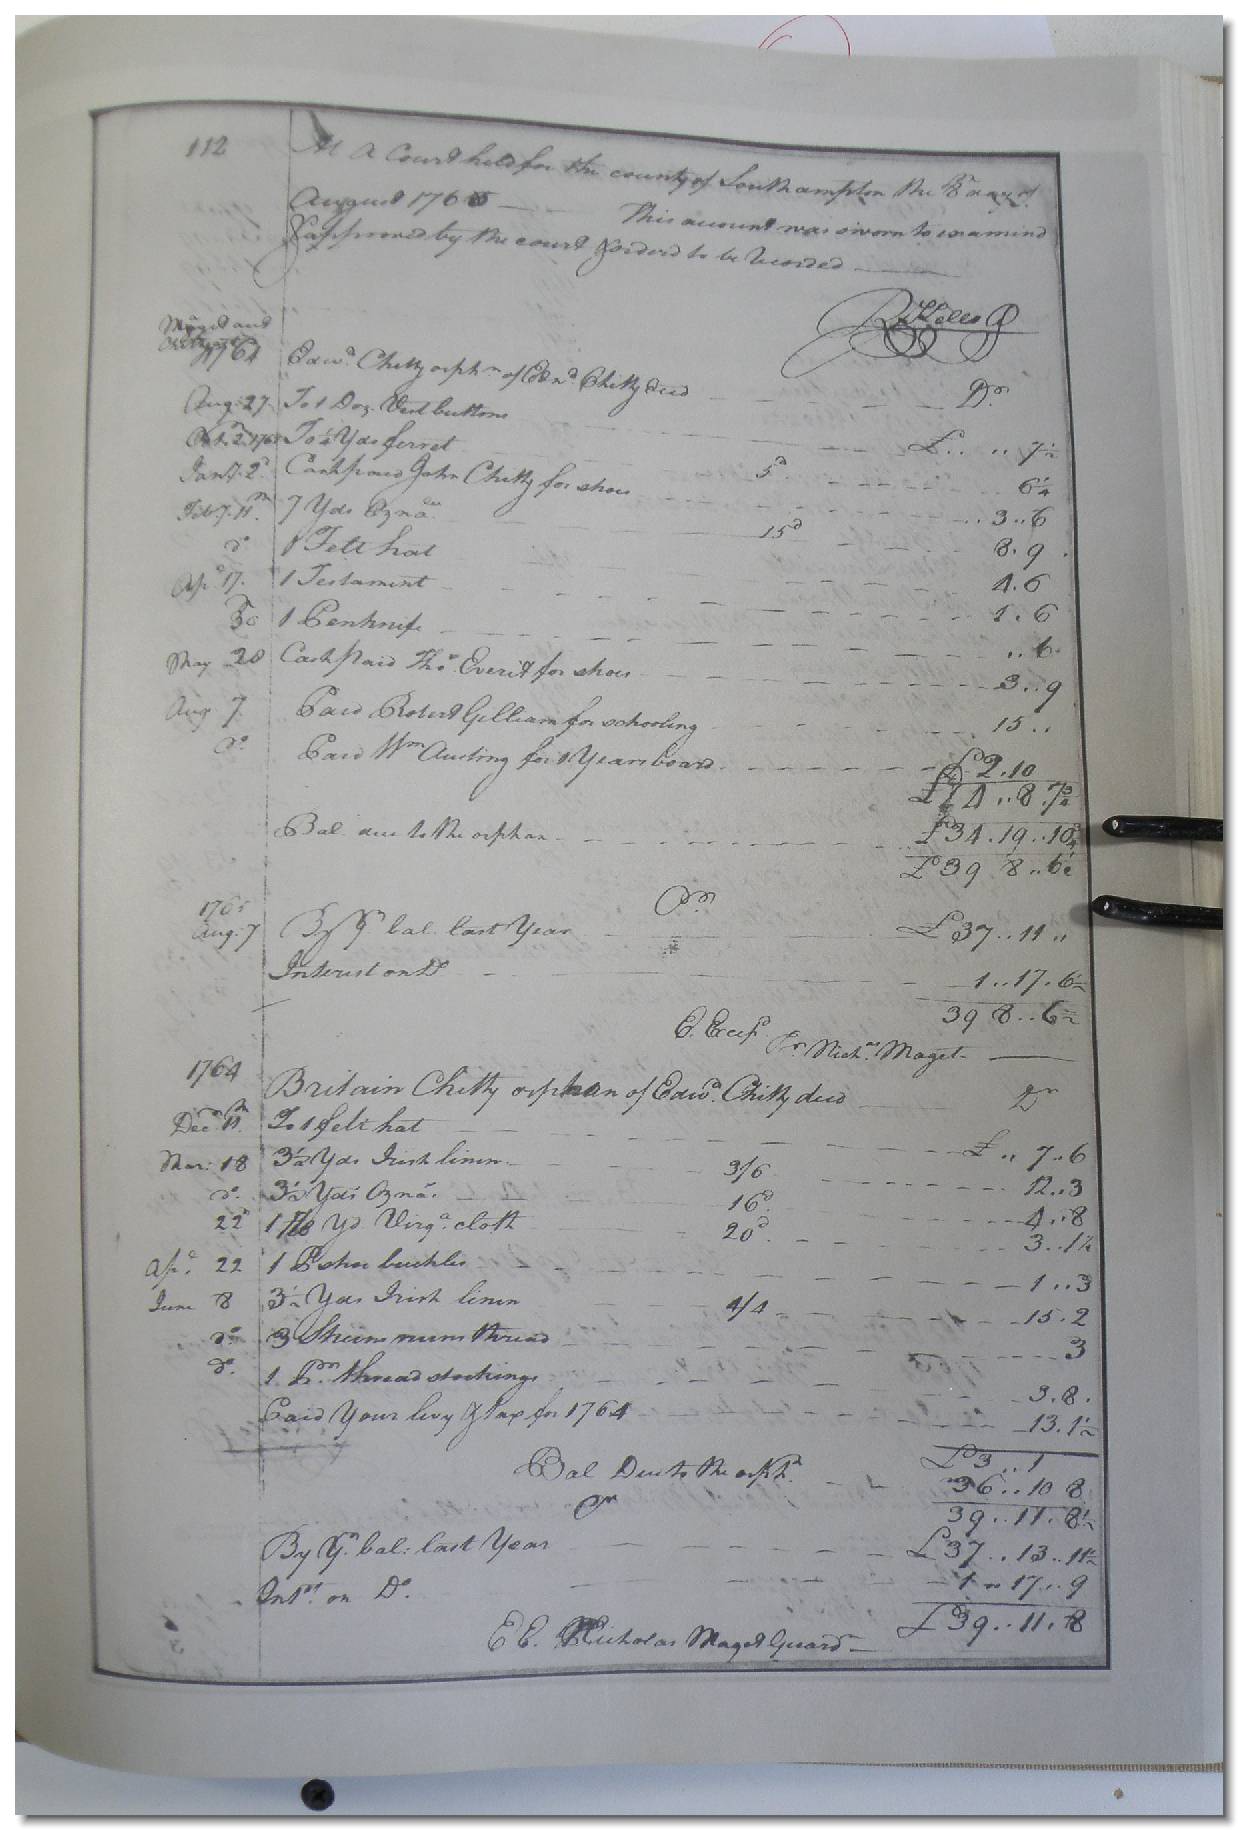 112
At a Court held for the county of Southampton the 8th day of
August 1765
This account was sworn to examined
& approved by the court & orderd to be Recorded
R Kello
Maget and
1764 Edwd. Chitty orphn of Edwd. Chitty decd Dr
Aug. 27 To 1 Doz. Vest buttons £ .. .. 7½
To 1½ Yds ferret 5d 6¼
Jany. 2d Cash paid John Chitty for shoes .. 3 .. 6
Feby. 11th 7 Yds Ozna. 15d 8. 9
do 1 Felt hat 4. 6
Apl. 17. 1 Testament 1. 6
30 1 Penknife .. 6
May 20 Cash paid Thos. Everit for shoes 3 .. 9
Aug 7 Paid Robert Gilliam for schooling 15 ..
do Paid Wm Austing for 1 Years board £2. 10
£4 .. 8. 7¾
Bal due to the orphan £34. 19 .. 10¾
£39 8 .. 6½
Cr
1765
Aug. 7 By Yr bal. last Year £37 .. 11 ..
Interest on Do 1 .. 17. 6½
39 8 .. 6½
E. Excepd. Pr Nichs. Maget
1764 Britain Chitty orphan of Edwd. Chitty decd Dr
Decr. 11. To 1 felt hat £ .. 7 .. 6
Mar: 18 3½ Yds Irish linen 3/6 12 .. 3
do. 3½ Yds Ozna. 16d 4 .. 8
22d 1 7/8 Yd Virga. cloth 20d. 3 .. 1½
Apl. 22 1 P shoe buckles 1 .. 3
June 8 3½ Yds Irish linen 4/4 15. 2
do 3 Skeins nuns thread 3
do. 1 Pr. thread stockings 3. 8.
Paid Your levy & tax for 1764 13. 1½
£3 .. 1
Bal Due to the orphn. 36 .. 10 8
Cr 39 .. 11. 8½
By Yr. bal: last Year £37 .. 13 .. 11½
Intst on Do. 1 .. 17 .. 9
£39 .. 11. 8
E E. Nicholas Maget Guardn